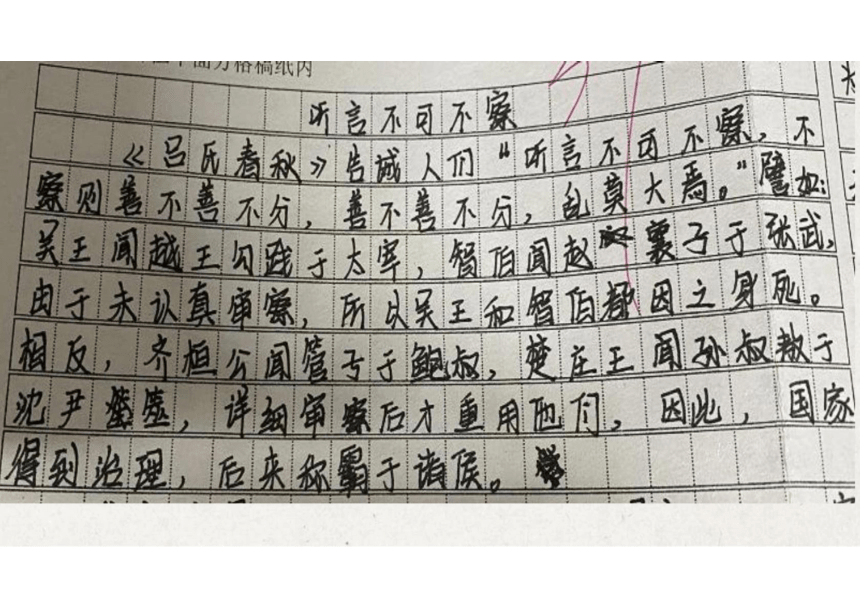 在下面方格稿纸内
听言不可不察
《吕氏春秋》告诫人们“听言不可不察，不
察则善不善不分，善不善不分，乱莫大焉。”譬如：
吴王闻越王勾践于太宰，智伯闻赵襄子于张武，
由于未认真审察，所以吴王和智伯都因之身死。
相反，齐桓公闻管子于鲍叔，楚庄王闻孙叔敖于
沈尹筮，详细审察后才重用他们，因此，国家
得到治理，后来称霸于诸侯。